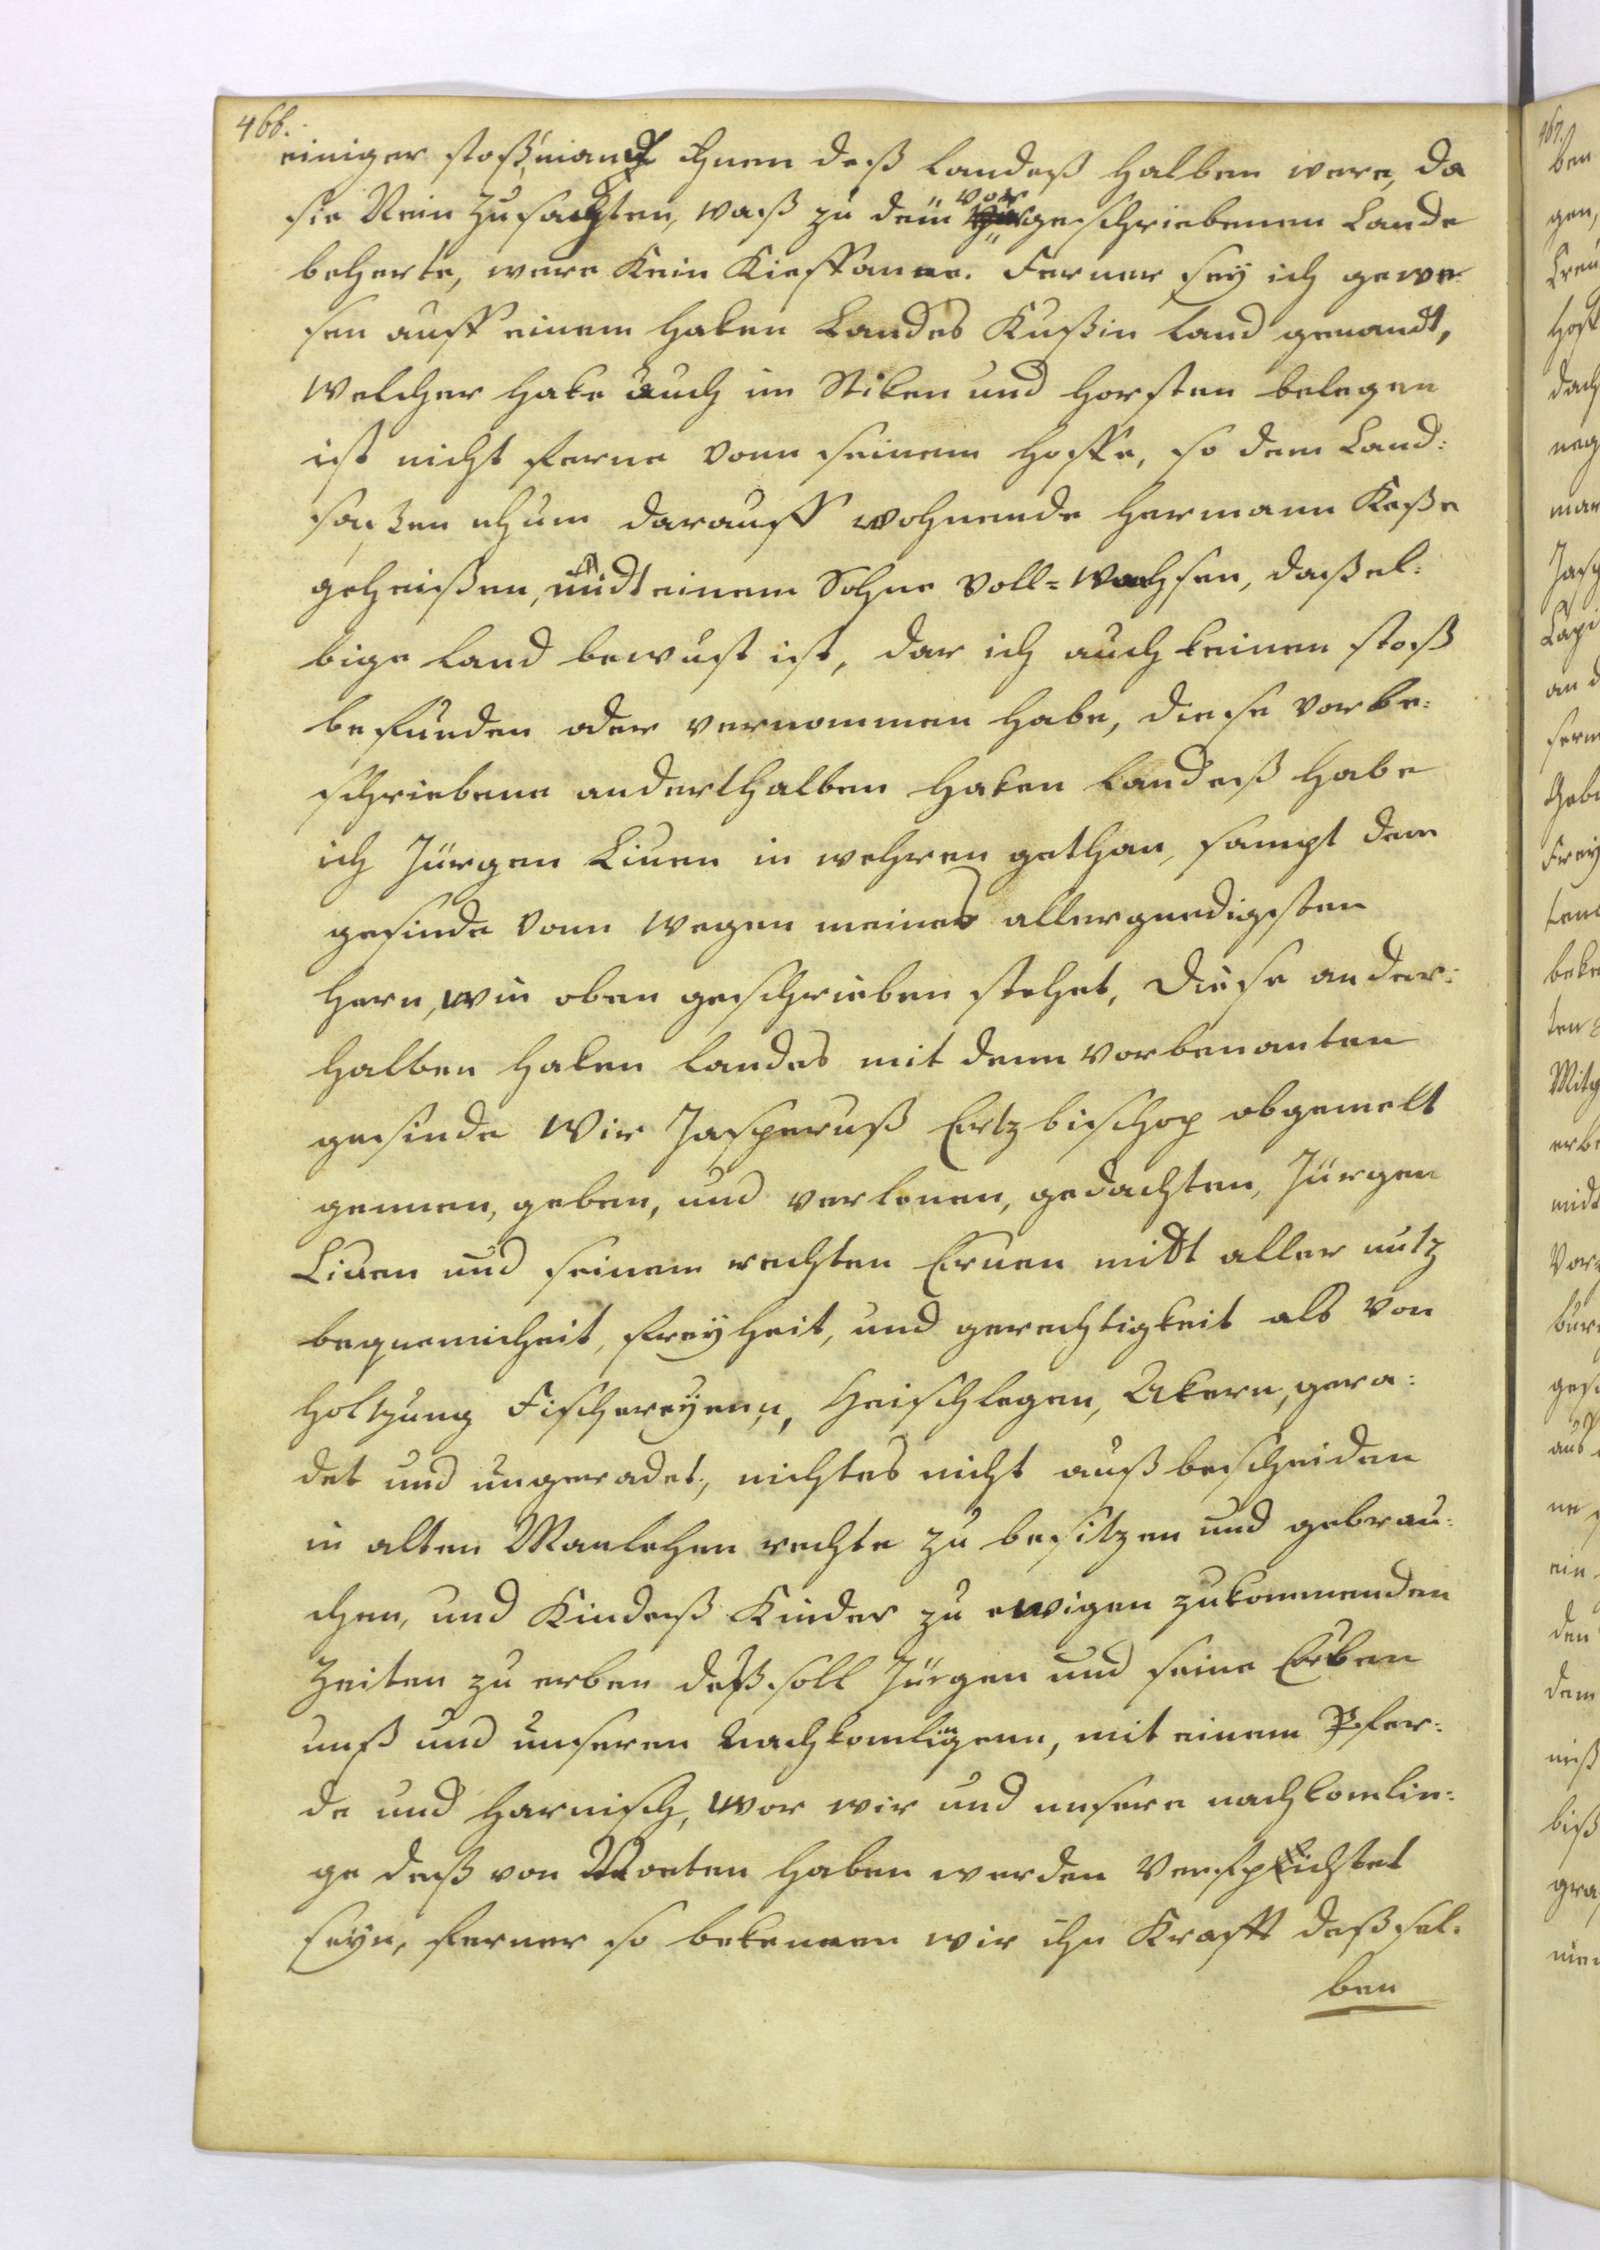 466.
einiger stoß, niandt Ihnen deß Landeß halben were, da
sie Nein zu sachten, waß zu dem vor geschriebenen Lande
beherte, were Kein Kieffanne. Ferner sey ich gewe
sen auff einem Haken Landes Kußin Land genandt,
Welcher Hake auch im Stiken und Horsten belegen
ist nicht ferne vonn seinem Hoffe, so dem Land:
saßen nhum darauff wohnende Hermann Kaße
geheißen, midt einem Sohne Voll-Wachsen, daßel:
bige Land bewust ist, dar ich auch keinen stoß
befunden oder vernommen habe, diese vorbe:
schriebene anderthalben Haken Landeß habe
ich Jürgen Liuen in wehren gethan, sampt dem
gesinde vonn Wegen meines allergnedigsten
Hern, wie oben geschrieben stehet, Diese ander:
halben Haken Landes mit denn vorbenanten
gesinde Wir Jasperuß Ertzbischop obgemelt
gennen, geben, und verlenen, gedachten, Jürgen
Liuen und seinem rechten Eruen midt aller nutz
bequemicheit, freyheit, und gerechtigkeit als von
Holtzung Fischereyenn, Heischlegen, Akern, gera:
det und ungeradet, nichtes nicht außbescheiden
in alten Manlehen rechte zu besitzen und gebrau:
chen, und Kindeß Kinder zu ewigen zukommenden
Zeiten zu erben deß soll Jürgen und seine Erben
unß und unseren Nachkomlingenn, mit einem Pfer:
de und Harnisch, Wor wir und unsere nachkomlin:
ge deß von Noeten haben werden Verpflichtet
seyn, ferner so bekennen wir ihn Krafft deßsel.
ben